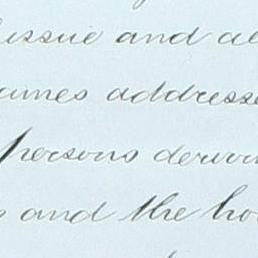 issue and al
ames addresse
persons deriv
and the ho